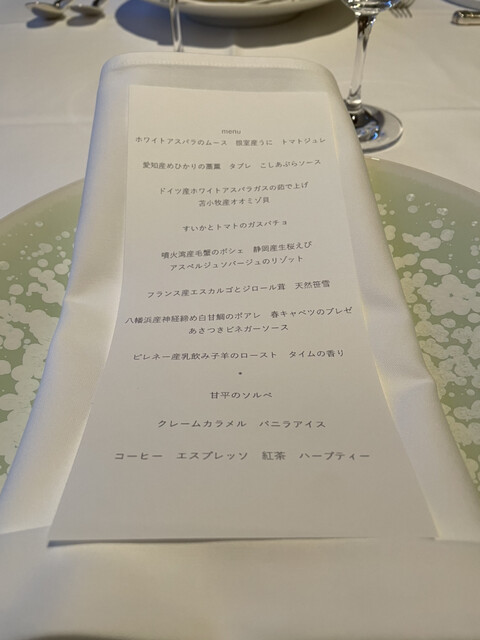 menu
ホワイトアスパラのムース　根室産うに　トマトジュレ
愛知産めひかりの燻薫　タブレ　こしあぶらソース
ドイツ産ホワイトアスパラガスの茹で上げ
苫小牧産オオミゾ貝
すいかとトマトのガスパチョ
噴火湾産毛蟹のポシェ　静岡産生桜えび
アスペルジュソバージュのリゾット
フランス産エスカルゴとジロール茸　天然笹雪
八幡浜産神経締め白甘鯛のポアレ　春キャベツのブレゼ
あさつきビネガーソース
ピレネー産乳飲み子羊のロースト　タイムの香り
*
甘平のソルベ
クレームカラメル　バニラアイス
コーヒー　エスプレッソ　紅茶　ハーブティー